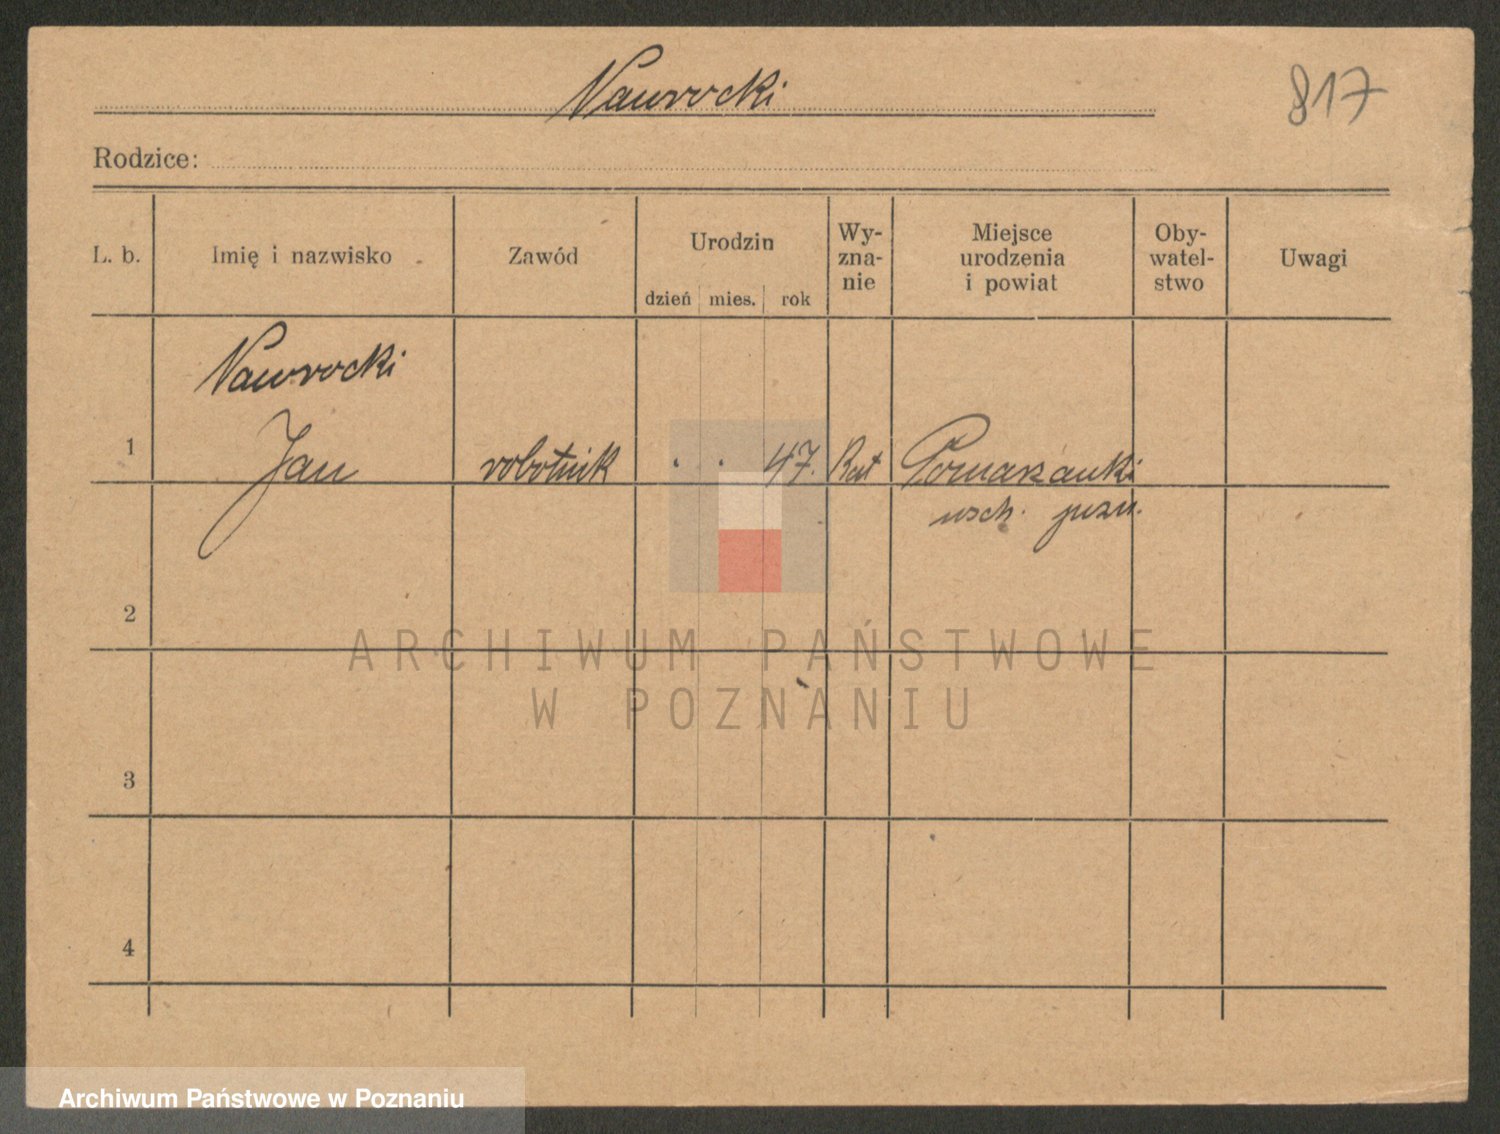 Nawrocki
817
Rodzice:
L. b. Imię i nazwisko Zawód Urodzin dzień mies. rok Wy-zna-nie Miejsce urodzenia i powiat Oby-watel-stwo Uwagi
Nawrocki
1 Jan robotnik . . 47. Kat Pomarzanki
2
3
4
ARCHIWUM PAŃSTWOWE
W POZNANIU
Archiwum Państwowe w Poznaniu